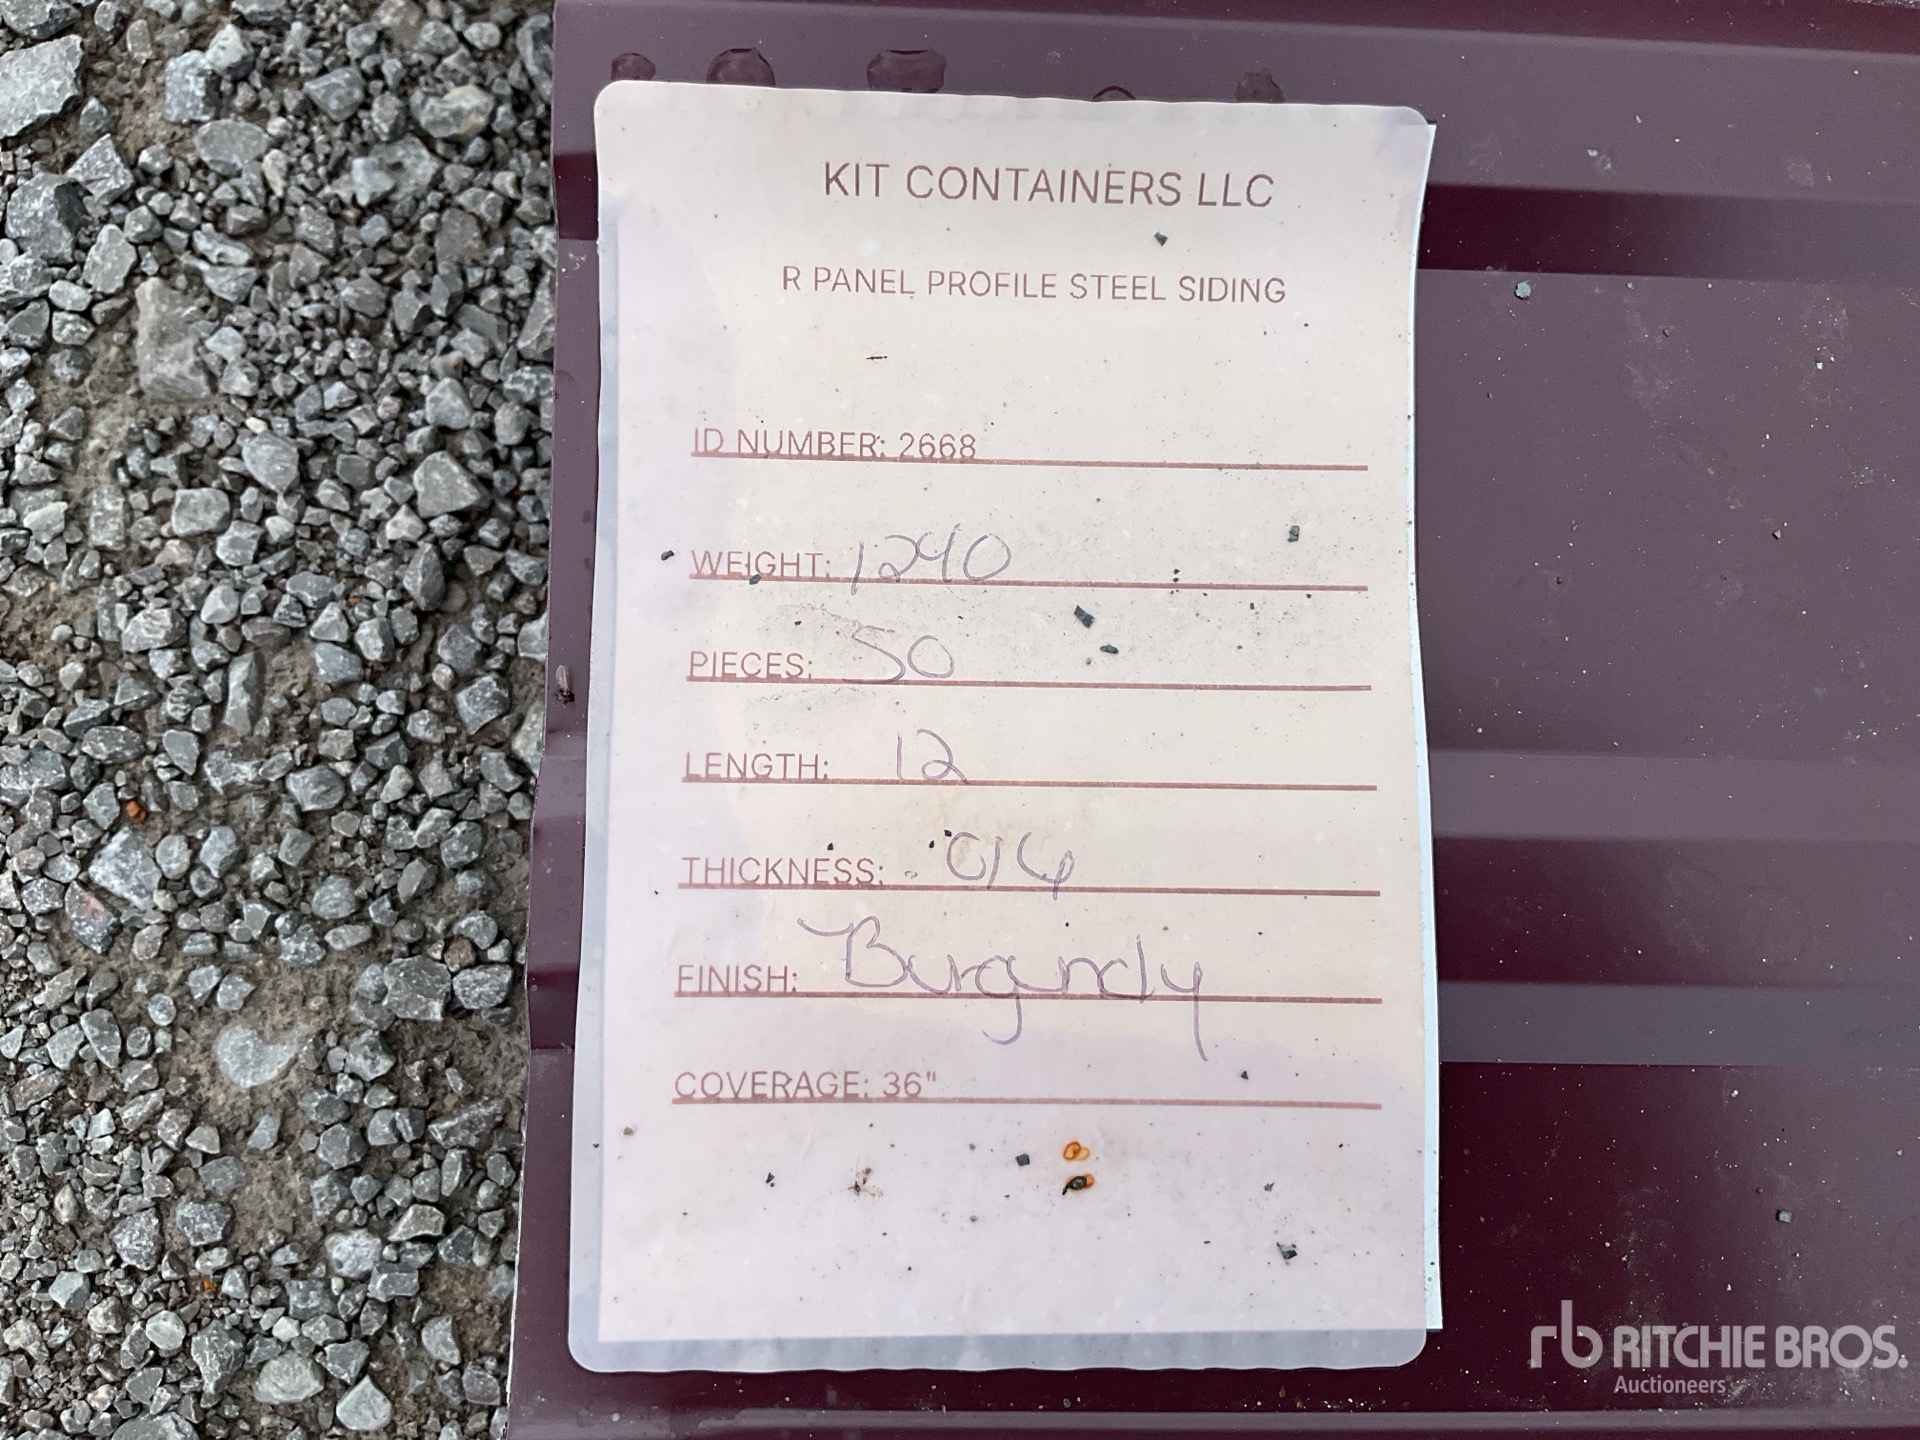 KIT CONTAINERS LLC
R PANEL PROFILE STEEL SIDING
ID NUMBER: 2668
WEIGHT: 1240
PIECES: 50
LENGTH: 12
THICKNESS: .016
FINISH: Burgundy
COVERAGE: 36"
rb RITCHIE BROS.
Auctioneers